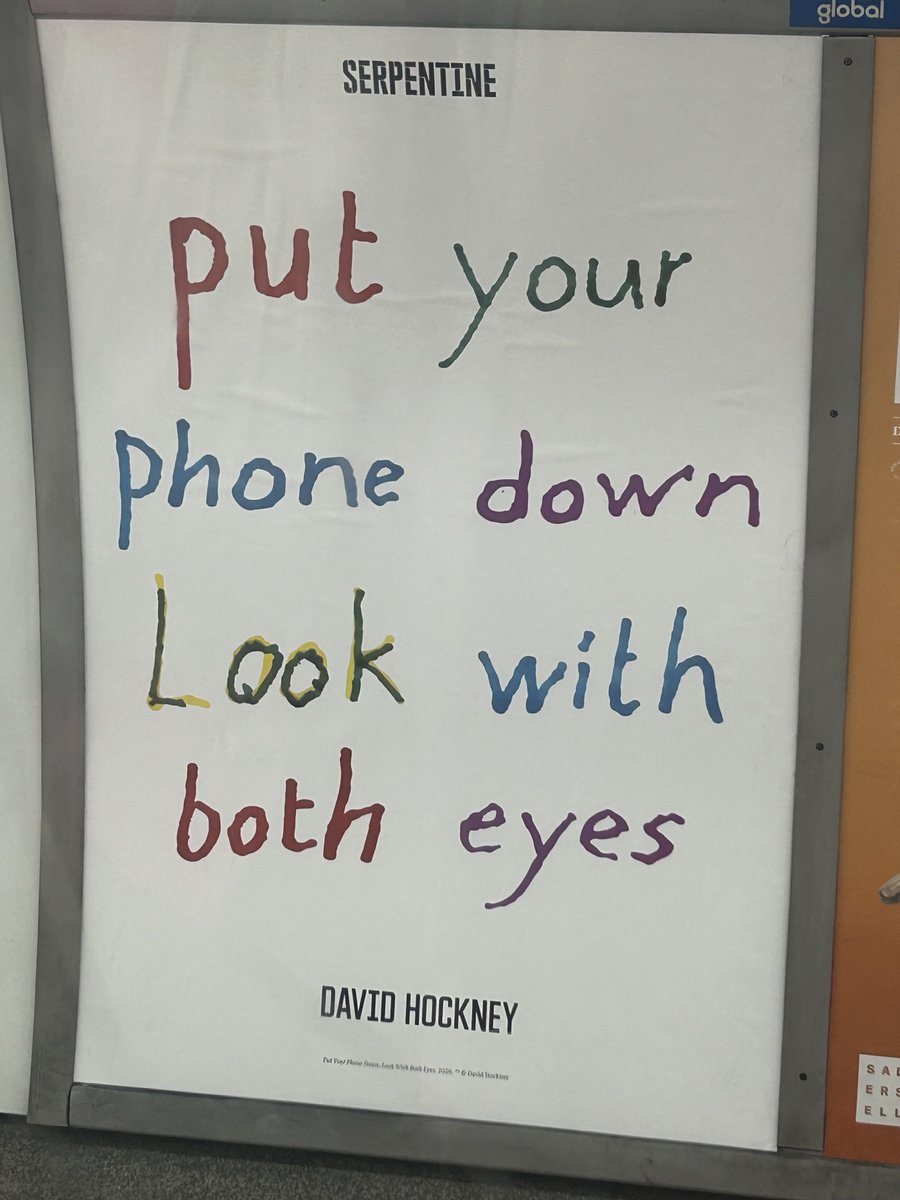 global
SERPENTINE
put your
phone down
Look with
both eyes
DAVID HOCKNEY
Put Your Phone Down, Look With Both Eyes, 2026, © David Hockney
SAD
ERS
ELL